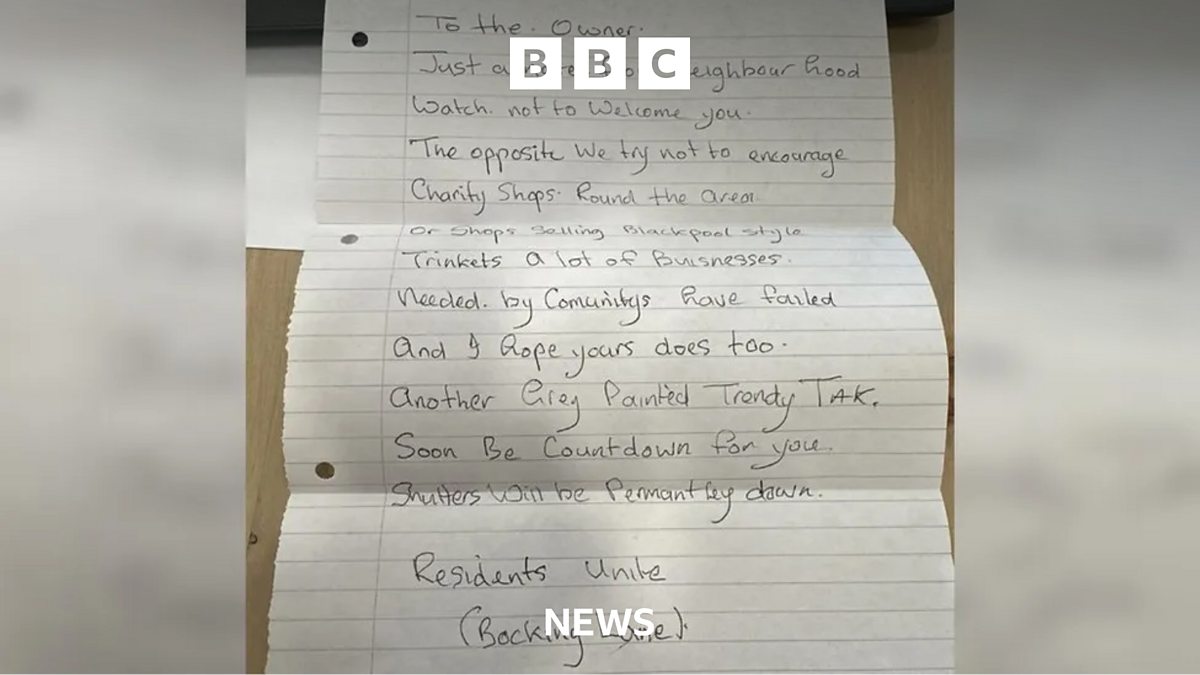 To the. Owner.
BBC
Just a eighbour hood
Watch. not to Welcome you.
The opposite We try not to encourage
Charity Shops. Round the area
or Shops Selling Blackpool style
Trinkets a lot of Buisnesses.
Needed. by Comunitys have failed
And I hope yours does too.
Another Grey Painted Trendy TAK.
Soon Be Countdown for you.
Shutters Will be Permantley down.
Residents Unite
NEWS
(Bocking